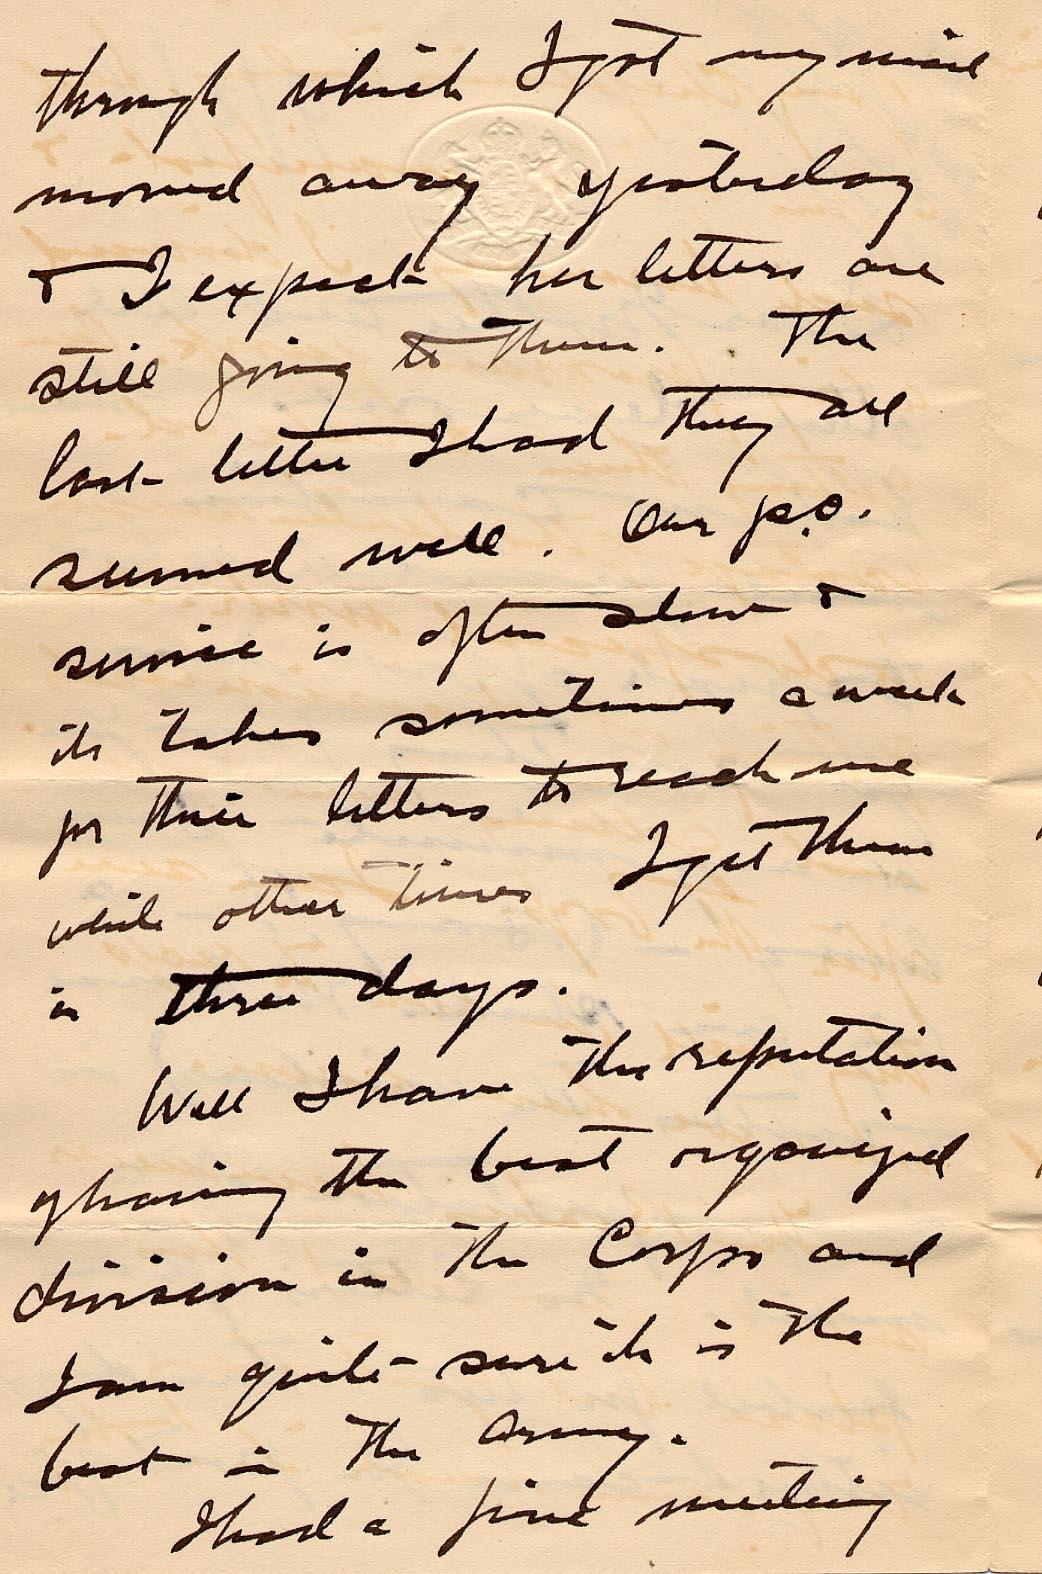 through which I got my mail
moved away yesterday
& I expect her letters are
still going to them. The
last letter I had they all
seemed well. Our p.o.
service is often slow &
it takes sometimes a week
for their letters to reach me
while other times I get them
in three days.
Well I have the reputation
of having the best organized
division in the Corps and
I am quite sure it is the
best in the Army.
I had a fine meeting